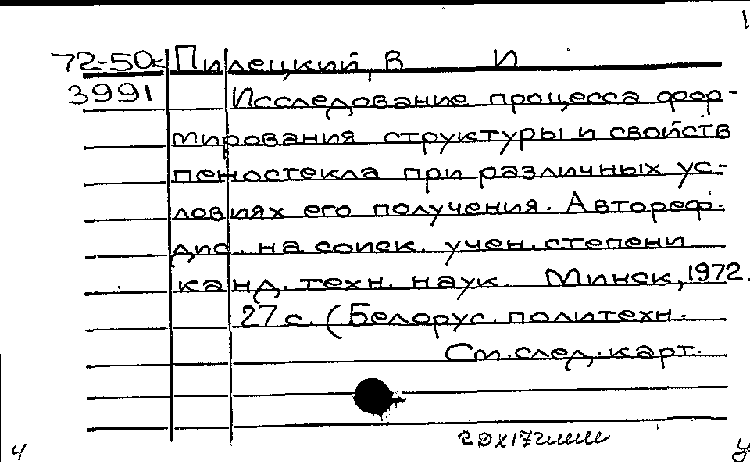 72-50к Пилецкий, В И
3991 Исследование процесса фор-
мирования структуры и свойств
пеностекла при различных ус-
ловиях его получения. Автореф.
дис. на соиск. учен. степени
канд. техн. наук. Минск, 1972.
27 с. (Белорус. политехн.
См. след. карт.